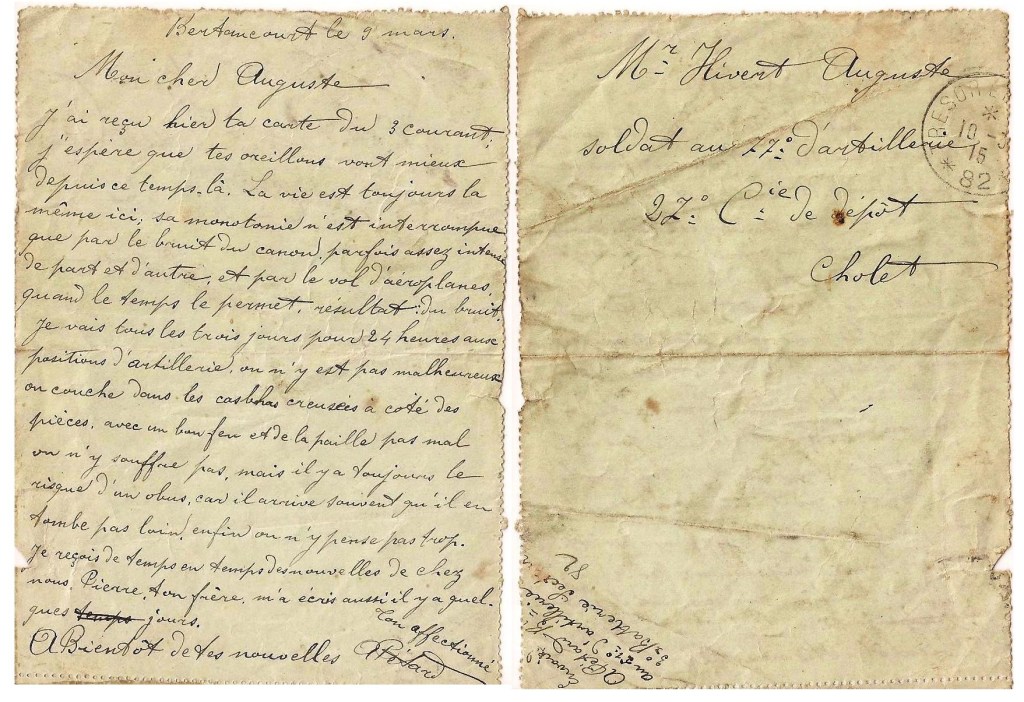 Bertancourt le 9 mars.
Mon cher Auguste
J'ai reçu hier ta carte du 3 courant;
j'espère que tes oreillons vont mieux
depuis ce temps-là. La vie est toujours la
même ici; sa monotonie n'est interrompue
que par le bruit du canon, parfois assez intense
de part et d'autre, et par le vol d'aéroplanes,
quand le temps le permet, résultat: du bruit.
Je vais tous les trois jours pour 24 heures aux
positions d'artillerie, on n'y est pas malheureux
on couche dans les casbhas creusées à coté des
pièces, avec un bon feu et de la paille pas mal
on n'y souffre pas, mais il y a toujours le
risque d'un obus, car il arrive souvent qu'il en
tombe pas loin, enfin on n'y pense pas trop.
Je reçois de temps en temps des nouvelles de chez
nous. Pierre, ton frère, m'a écris aussi il y a quel-
ques temps jours.
Ton affectionné
A Bientôt de tes nouvelles
Mr Hivert Auguste
soldat au 27e d'artillerie
27e Cie de dépôt
Cholet
RESOR
10
15
82
artillerie
Batterie
82